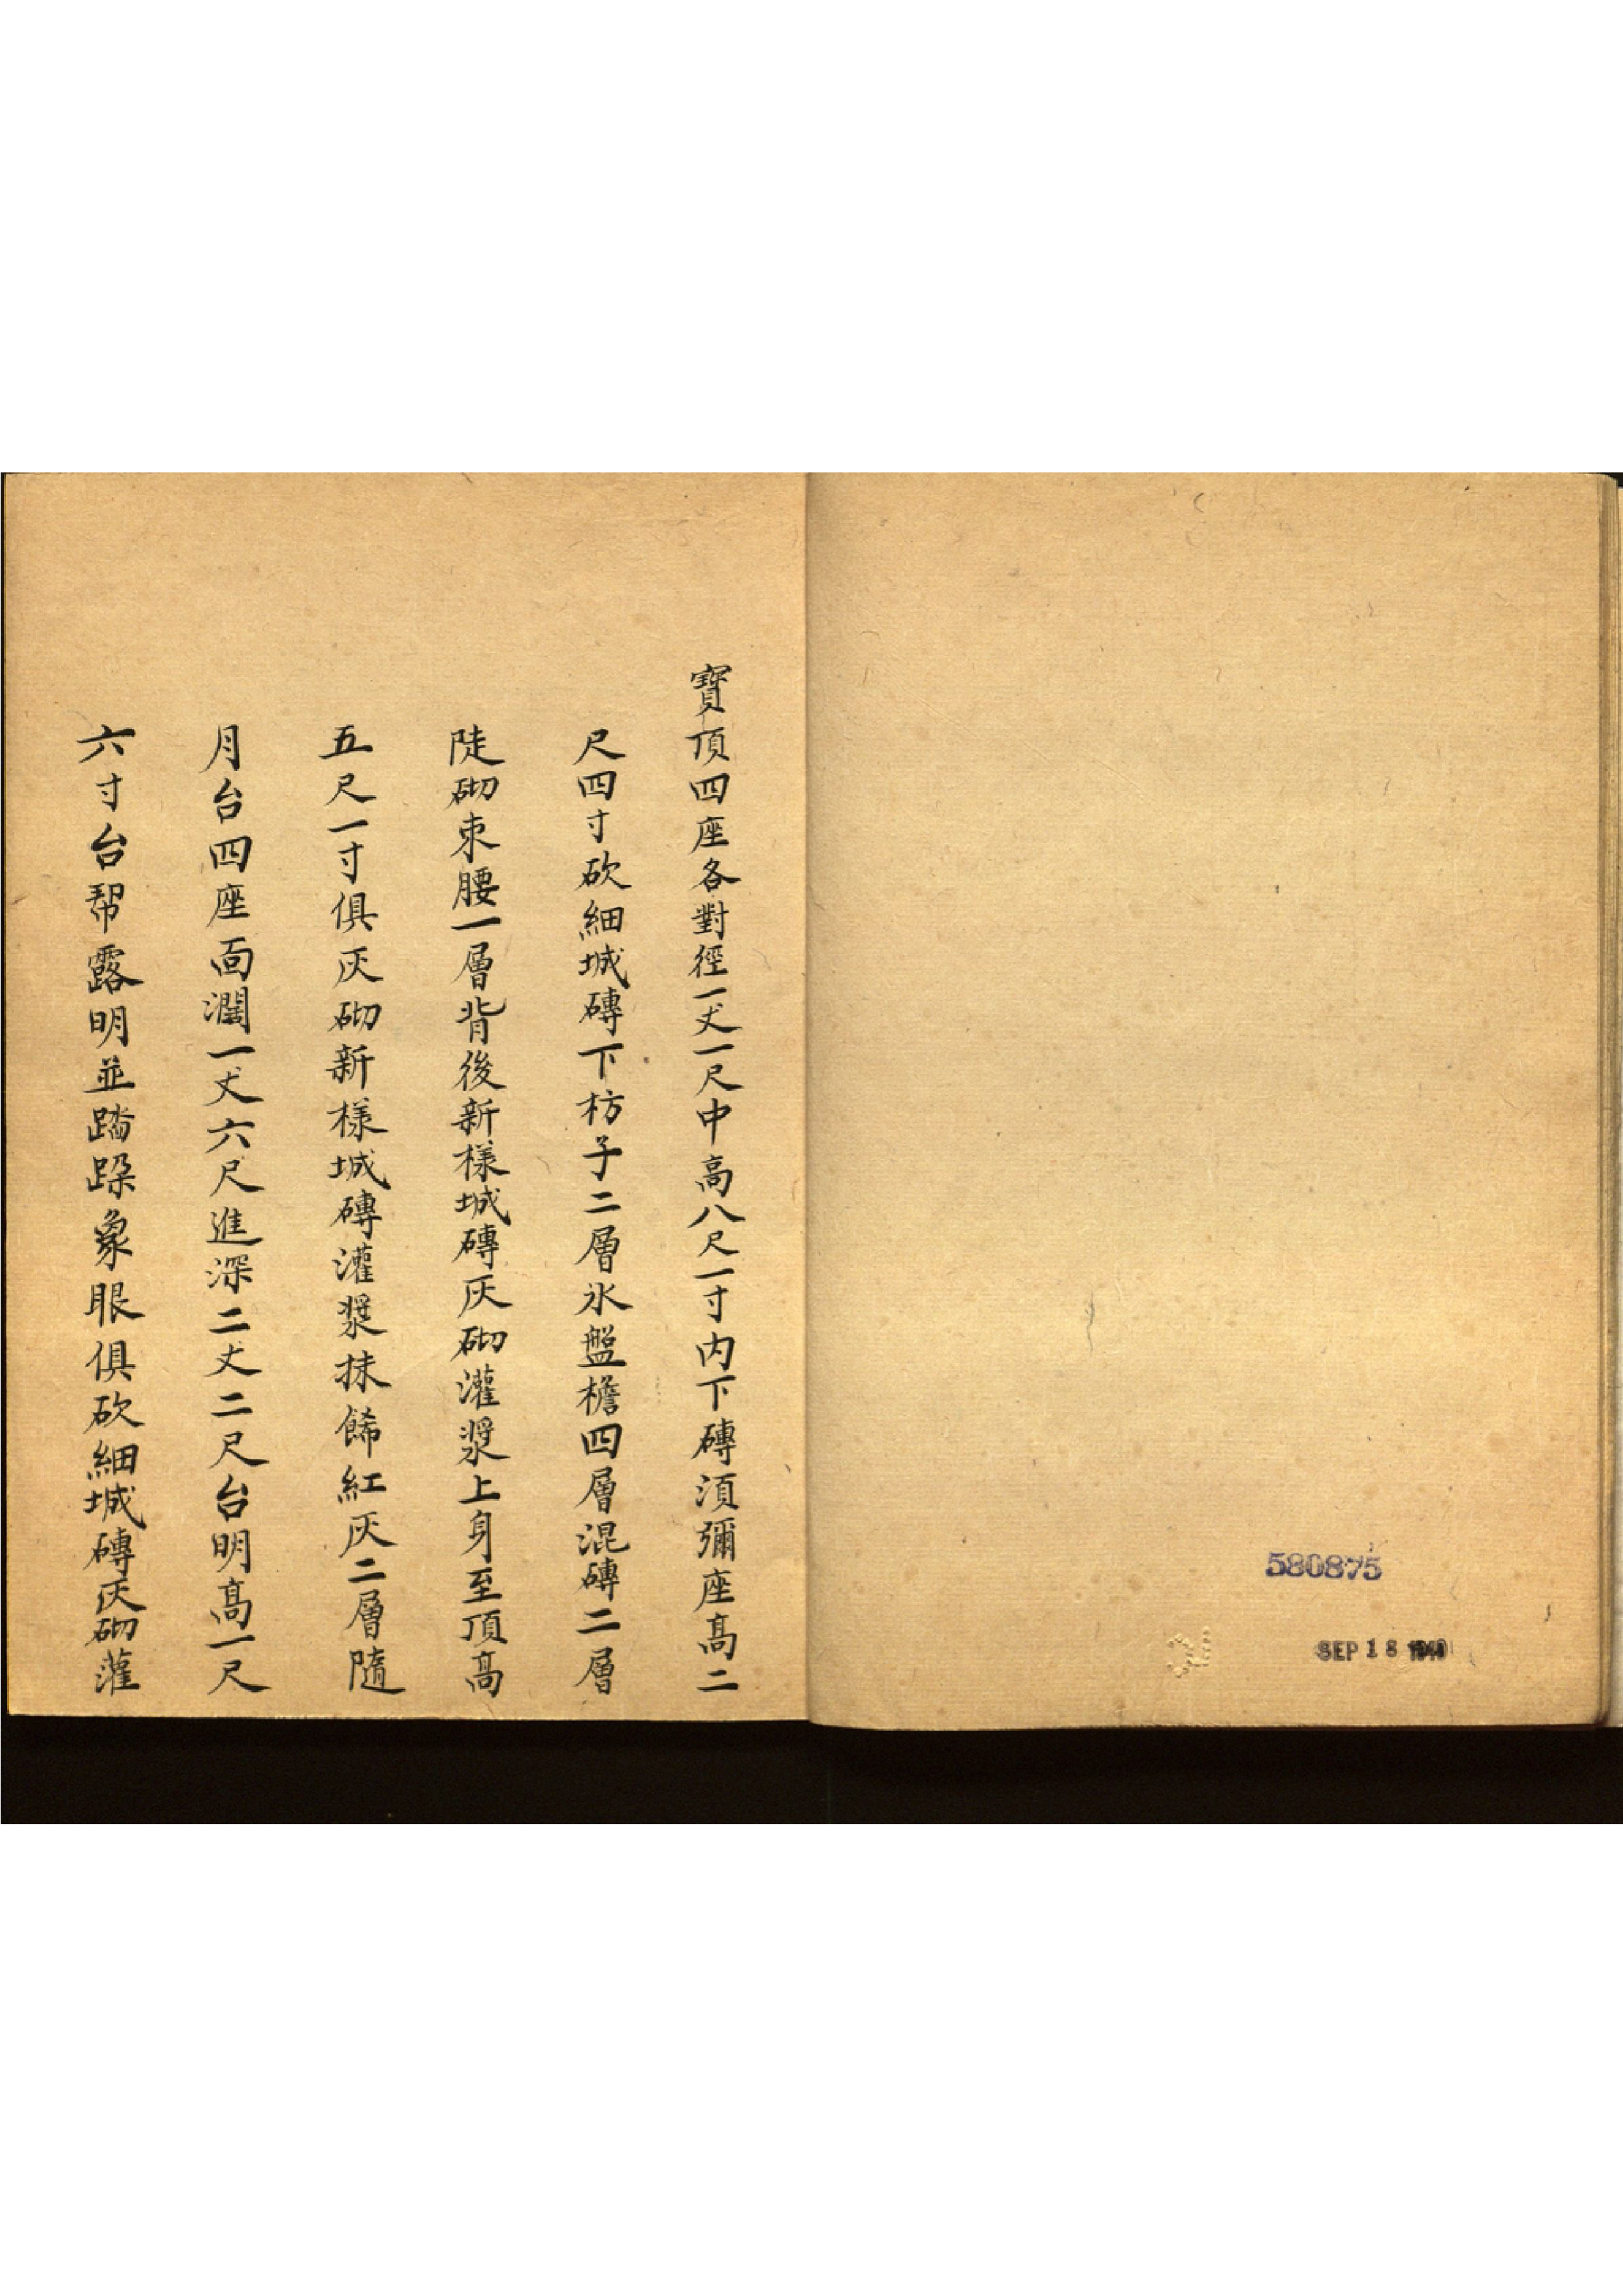 寶頂四座各對徑一丈一尺中高八尺一寸内下磚湏彌座高二
尺四寸砍細城磚下枋子二層氷盤檐四層混磚二層
陡砌束腰一層背後新様城磚灰砌灌漿上身至頂高
五尺一寸俱灰砌新様城磚灌漿抹餙紅灰二層隨
月台四座面濶一丈六尺進深二丈二尺台明高一尺
六寸台幇露明並踏跺象眼俱砍細城磚灰砌灌
580875
SEP 18 1940